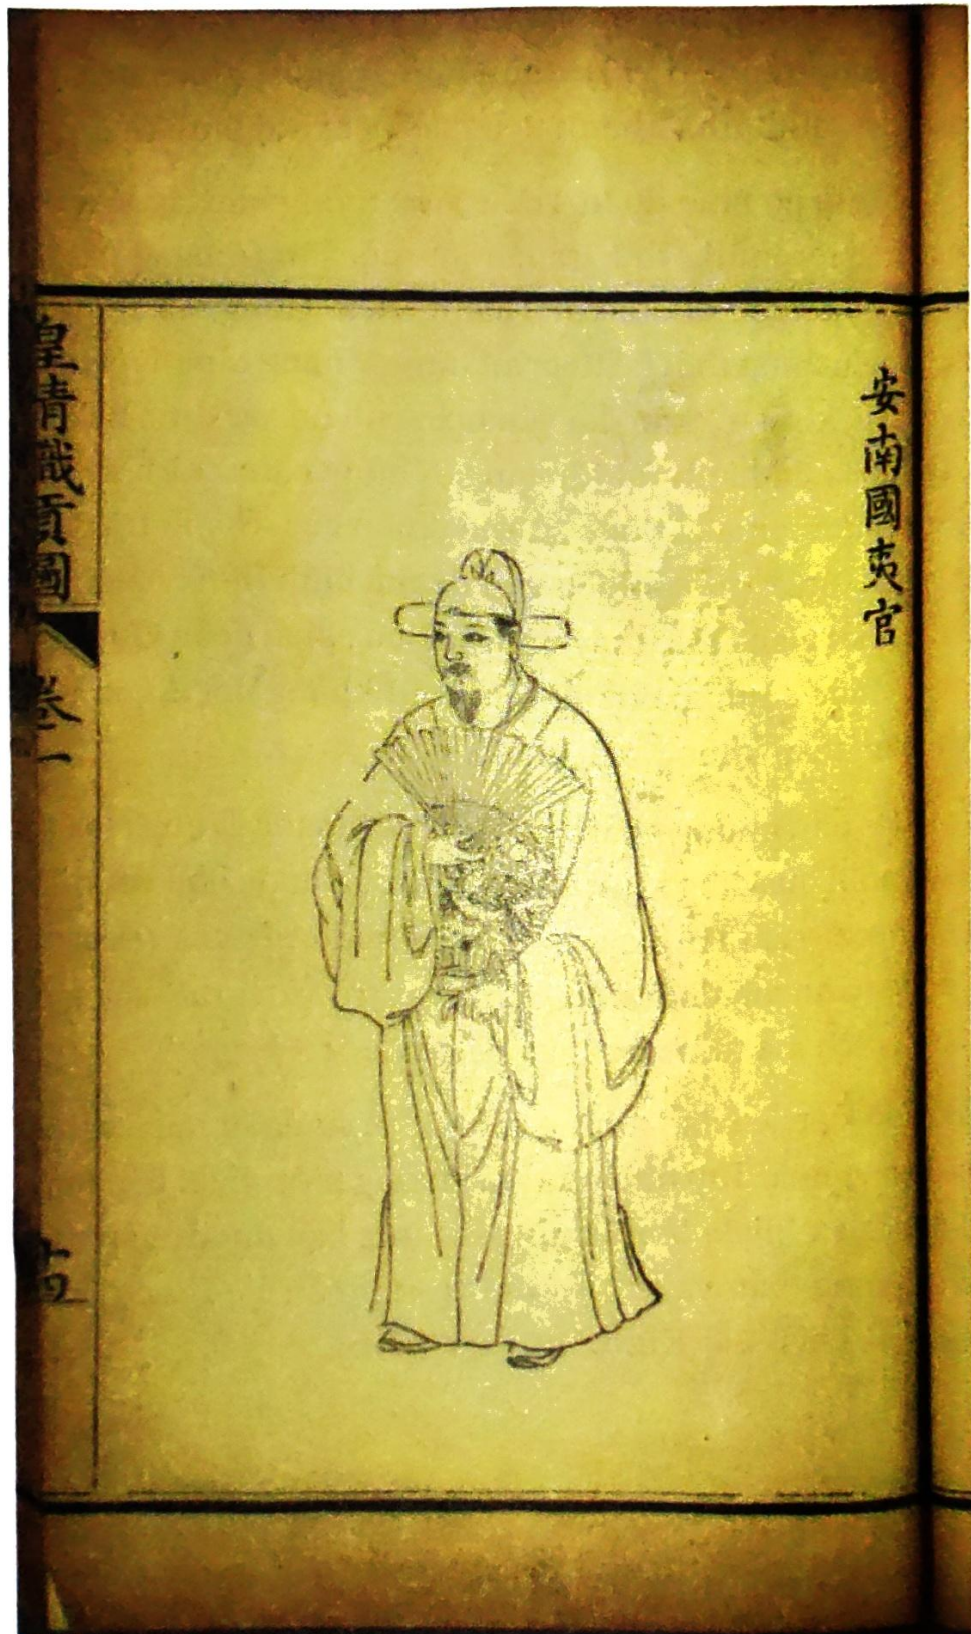 安南國夷官
皇清職貢圖
卷一